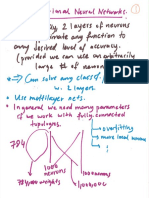 ional Neural Networks. 1
ly 2 layers of neurons
imate any function to
any desired level of accuracy.
(provided we can use an arbitrarily
large # of neurons
⇒ Can solve any class of p
w. 2 layers
• Use multilayer nets.
• In general we need many parameters
if we work with fully connected
topologies.
• overfitting
784
more local
1000 neurons
100 neurons